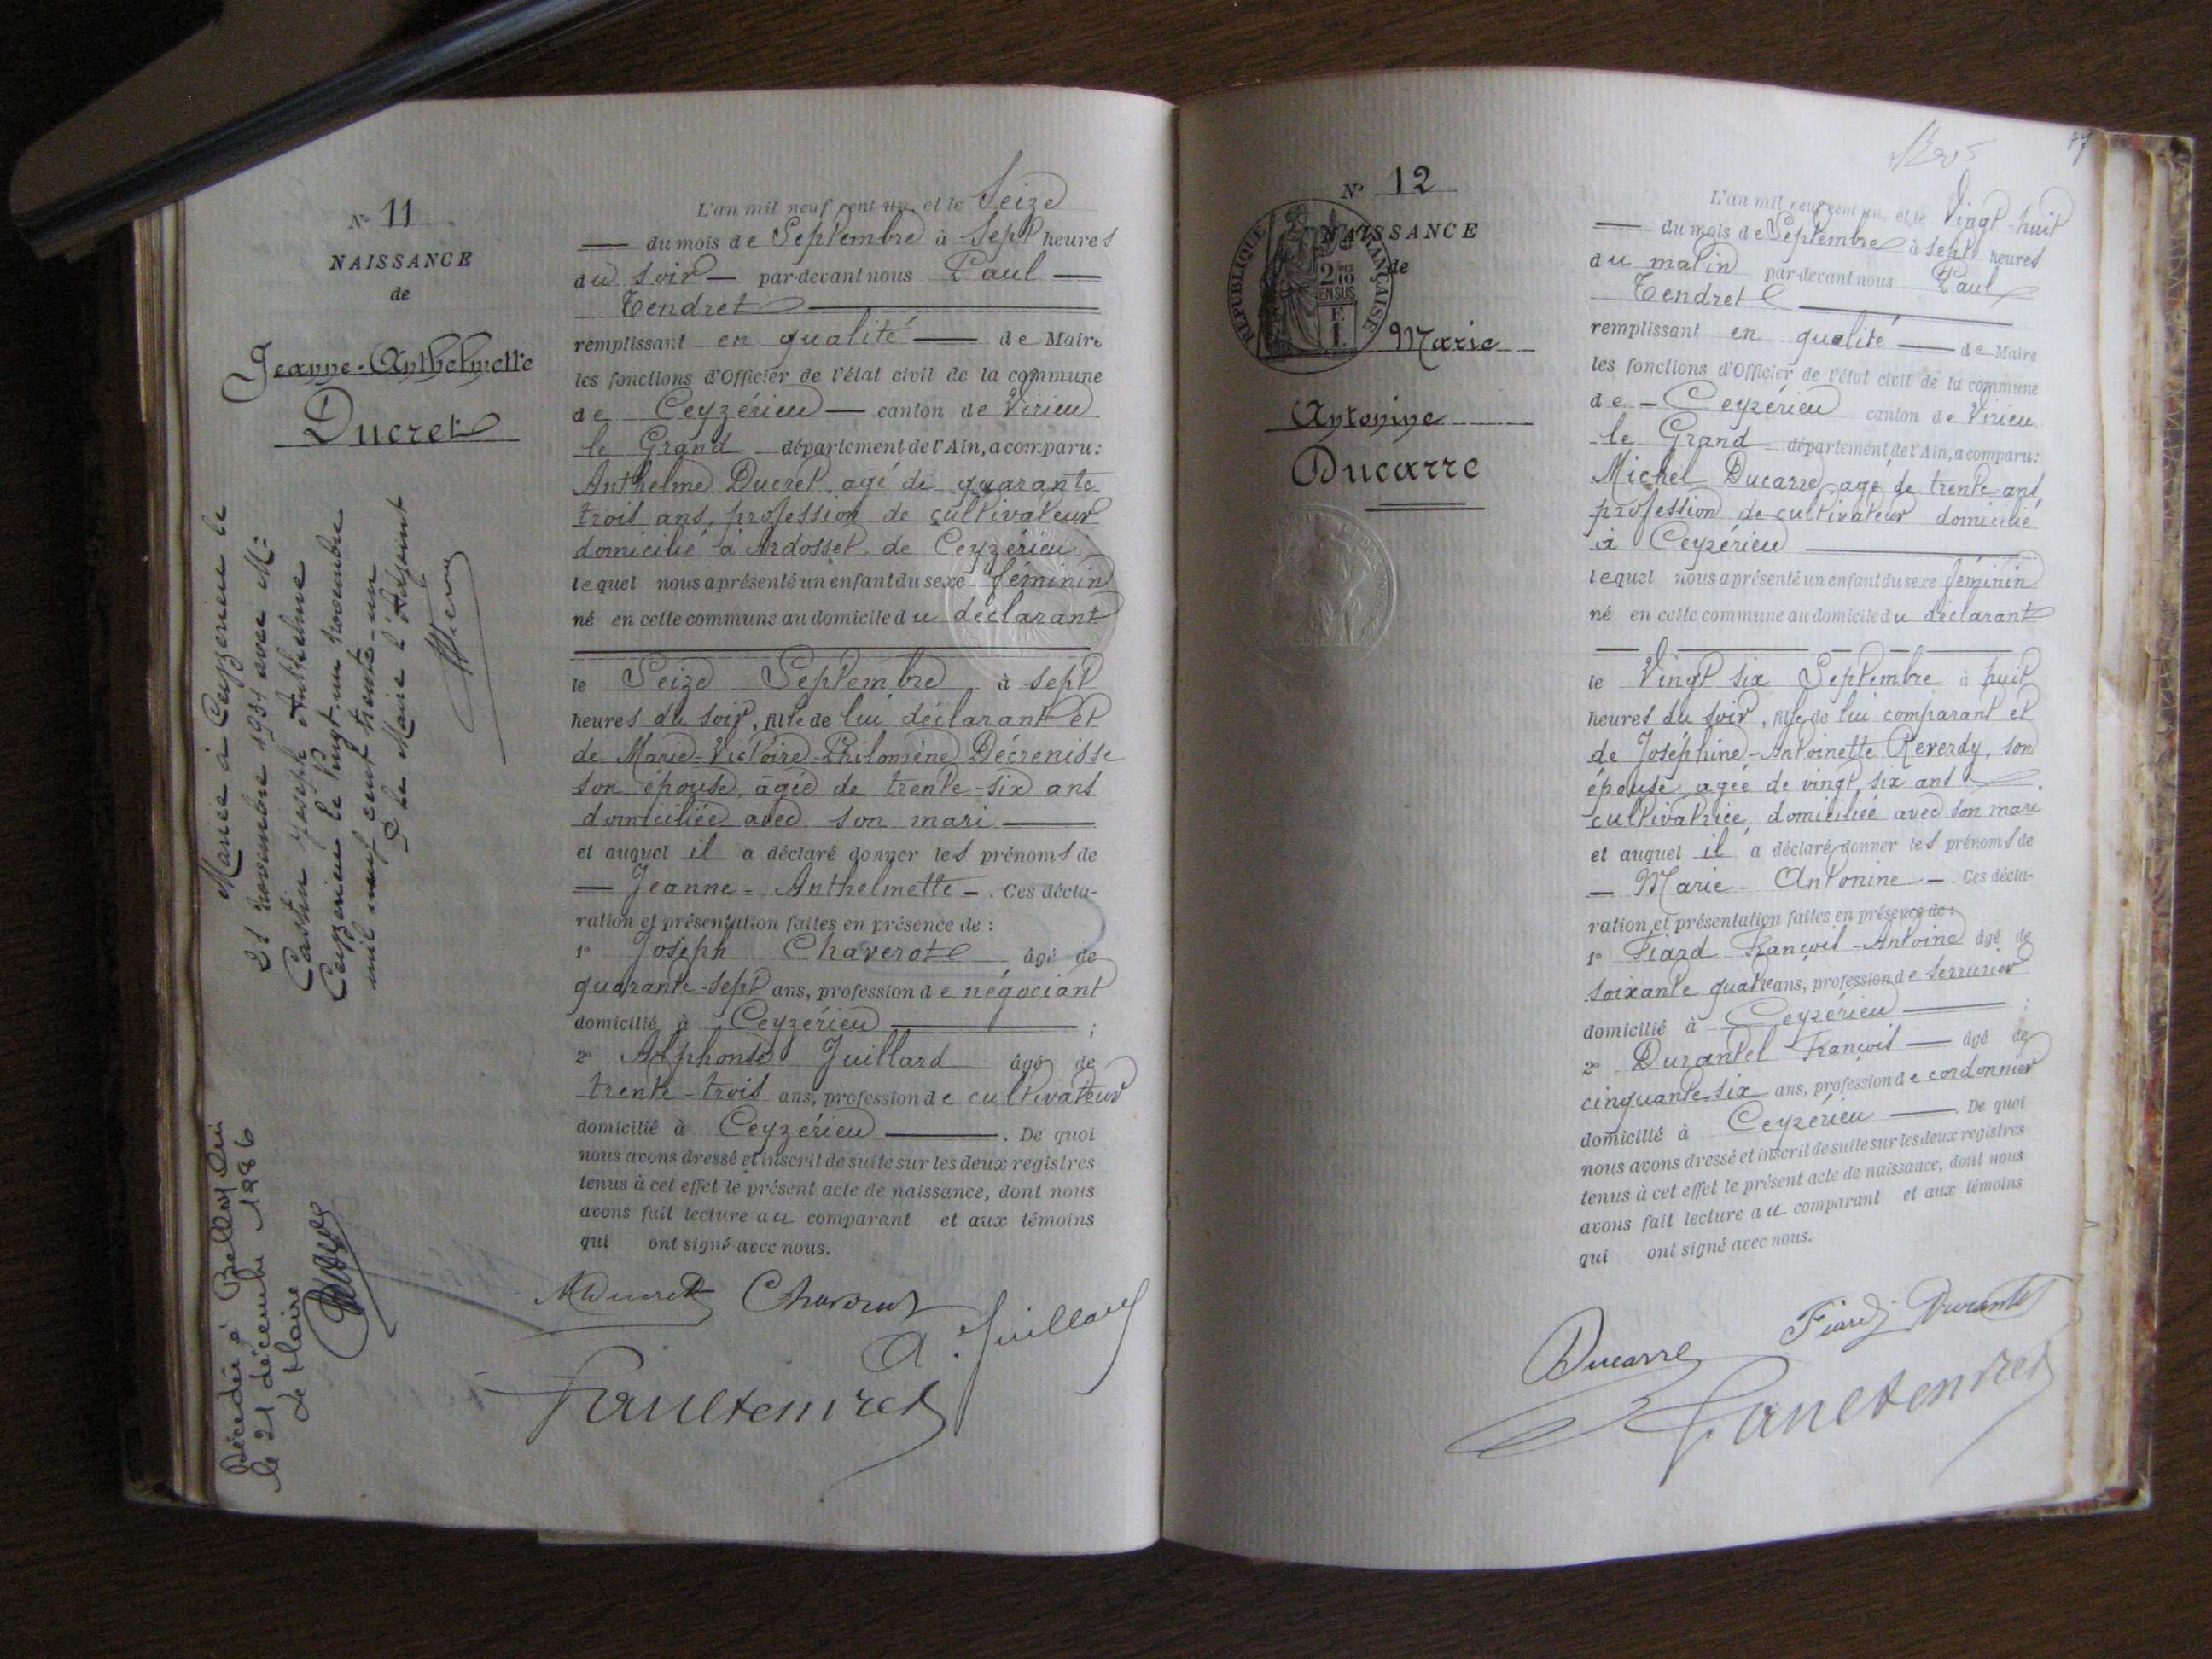 N° 11
NAISSANCE
de
Jeanne-Anthelmette
Ducret
Mariée à Ceyzerieu le
21 novembre 1931 avec M=
Castin Joseph Anthelme
Ceyzerieu le vingt-un novembre
mil neuf cent trente-un
Le Maire l'Adjoint
Décédée à Belley Ain
le 21 décembre 1986
Le Maire
L'an mil neuf cent un, et le Seize
du mois de Septembre à Sept heures
du soir par-devant nous Paul
Tendret
remplissant en qualité de Maire
les fonctions d'Officier de l'état civil de la commune
de Ceyzérieu canton de Virieu
le Grand département de l'Ain, a comparu :
Anthelme Ducret, agé de quarante
trois ans, profession de cultivateur
domicilié à Ardosset de Ceyzérieu
lequel nous a présenté un enfant du sexe féminin
né en cette commune au domicile du déclarant
le Seize Septembre à sept
heures du soir, fille de lui déclarant et
de Marie-Victoire-Philomène Décrenisse
son épouse, âgée de trente-six ans
domiciliée avec son mari
et auquel il a déclaré donner les prénoms de
— Jeanne-Anthelmette —. Ces décla-
ration et présentation faites en présence de :
1° Joseph Chaverot âgé de
quarante-sept ans, profession de négociant
domicilié à Ceyzérieu ;
2° Alphonse Juillard âgé de
trente-trois ans, profession de cultivateur
domicilié à Ceyzérieu . De quoi
nous avons dressé et inscrit de suite sur les deux registres
tenus à cet effet le présent acte de naissance, dont nous
avons fait lecture au comparant et aux témoins
qui ont signé avec nous.
ADucret Chaverot
A. Juillard
Paul Tendret
N° 12
NAISSANCE
de
RÉPUBLIQUE FRANÇAISE
2/10 EN SUS
Marie
Antonine
Ducarre
47
L'an mil neuf cent un, et le Vingt-huit
du mois de Septembre à sept heures
du matin par-devant nous Paul
Tendret
remplissant en qualité de Maire
les fonctions d'Officier de l'état civil de la commune
de — Ceyzérieu canton de Virieu
le Grand département de l'Ain, a comparu :
Michel Ducarre, agé de trente ans,
profession de cultivateur domicilié
à Ceyzérieu
lequel nous a présenté un enfant du sexe féminin
né en cette commune au domicile du déclarant
le Vingt six Septembre à huit
heures du soir, fille de lui comparant et
de Joséphine-Antoinette Reverdy, son
épouse agée de vingt six ans
cultivatrice, domiciliée avec son mari
et auquel il a déclaré donner les prénoms de
— Marie-Antonine —. Ces décla-
ration et présentation faites en présence de :
1° Fiard François-Antoine âgé de
soixante quatre ans, profession de serrurier
domicilié à Ceyzérieu ;
2° Durantel François — âgé de
cinquante-six ans, profession de cordonnier
domicilié à Ceyzérieu . De quoi
nous avons dressé et inscrit de suite sur les deux registres
tenus à cet effet le présent acte de naissance, dont nous
avons fait lecture au comparant et aux témoins
qui ont signé avec nous.
Ducarre Fiard Durantel
Paul Tendret